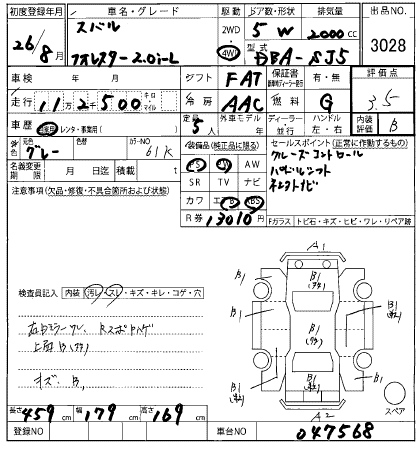 初度登録年月 車名・グレード 駆動 ドア数・形状 排気量 出品NO.
26年 スバル 2WD 5 W 2000 cc
8月 フォレスター 2.0i-L 4WD 型式 DBA-SJ5 3028
車検 年 月 シフト FAT 保証書 有・無 評価点
走行 11万2千500 キロ マイル 冷房 AAC 燃料 G 3.5
車歴 自家用 レンタ・事業用( ) 定員 5人 外車モデル 年 ディーラー 並行 ハンドル 左・右 内装評価 B
元色 グレー 色替 カラーNO 61K 装備品(純正品に限る) セールスポイント(正常に作動するもの)
名義変更期限 月 日迄 積載 t PS PW AW クルーズコントロール
注意事項(欠品・修復・不具合箇所および状態) SR TV ナビ パドルシフト
カワ エアB ABS
R券 13010円 Fガラス トビ石・キズ・ヒビ・ワレ・リペア跡
A1
B1
検査員記入 内装 汚レ・スレ・キズ・キレ・コゲ・穴
キズ B1
A2
スペア
長さ 459 cm 幅 179 cm 高さ 169 cm
登録NO 車台NO 047568